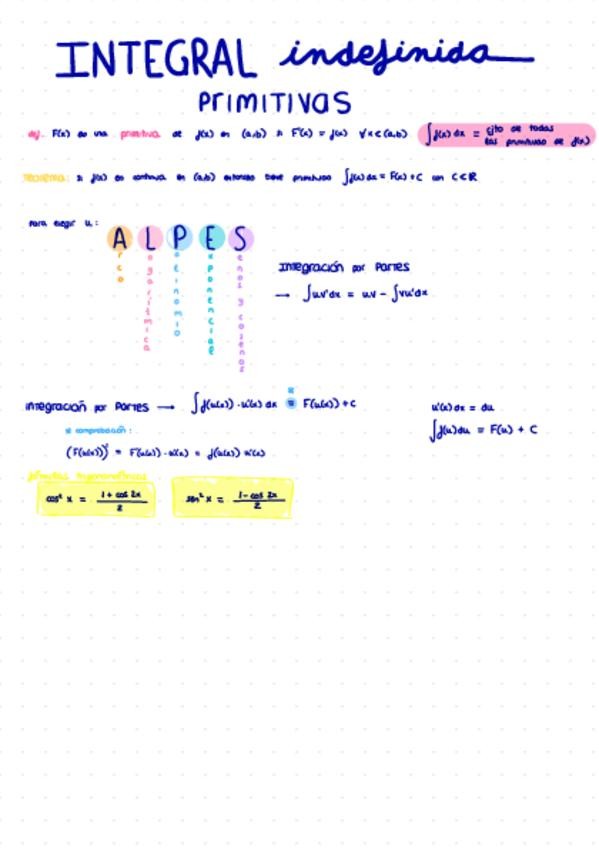 INTEGRAL indefinida
PRIMITIVAS
def. F(x) es una primitiva de f(x) en (a,b) si F'(x) = f(x) ∀x∈(a,b) ∫f(x) dx = cjto de todas las primitivas de f(x)
Teorema: si f(x) es continua en (a,b) entonces tiene primitiva ∫f(x)dx = F(x) + C con C∈ℝ
Para elegir u:
A L P E S
Arco
Logarítmica
Polinomio
Exponencial
Senos y cosenos
Integración por Partes
→ ∫uv'dx = uv - ∫vu'dx
Integración por Partes → ∫f(u(x))·u'(x) dx = F(u(x)) + C
u'(x) dx = du
∫f(u)du = F(u) + C
comprobación:
(F(u(x)))' = F'(u(x))·u'(x) = f(u(x)) u'(x)
fórmulas trigonométricas
cos² x = 1 + cos 2x / 2
sen² x = 1 - cos 2x / 2